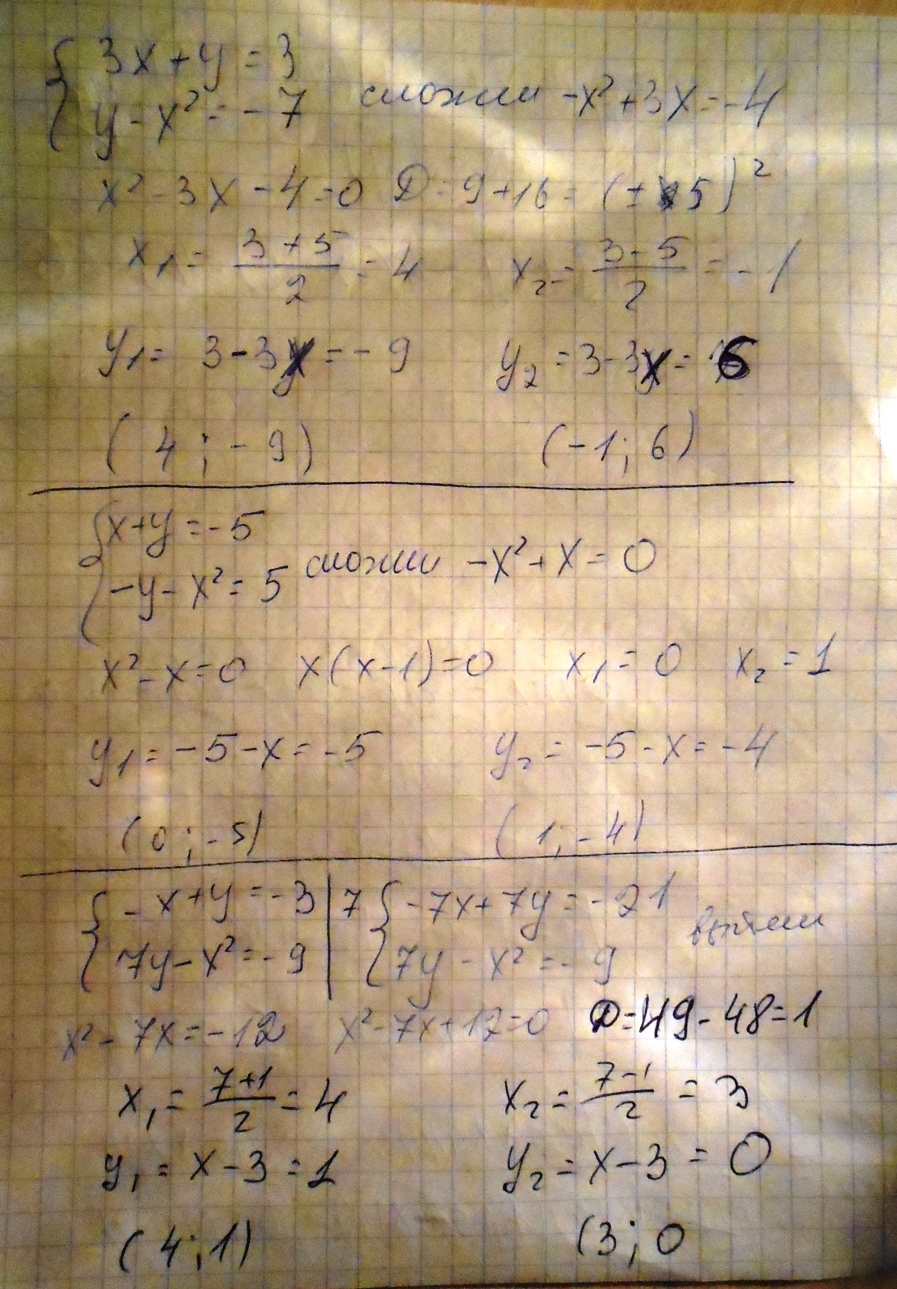 3x+y=3
y-x²=-7 сложим -x²+3x=-4
x²-3x-4=0 D=9+16=(±5)²
x₁=(3+5)/2=4 x₂=(3-5)/2=-1
y₁=3-3x=-9 y₂=3-3x=6
(4;-9) (-1;6)
x+y=-5
-y-x²=5 сложим -x²+x=0
x²-x=0 x(x-1)=0 x₁=0 x₂=1
y₁=-5-x=-5 y₂=-5-x=-4
(0;-5) (1;-4)
-x+y=-3 | 7 -7x+7y=-21
7y-x²=-9 7y-x²=-9
x²-7x=-12 x²-7x+12=0 D=49-48=1
x₁=(7+1)/2=4 x₂=(7-1)/2=3
y₁=x-3=1 y₂=x-3=0
(4;1) (3;0